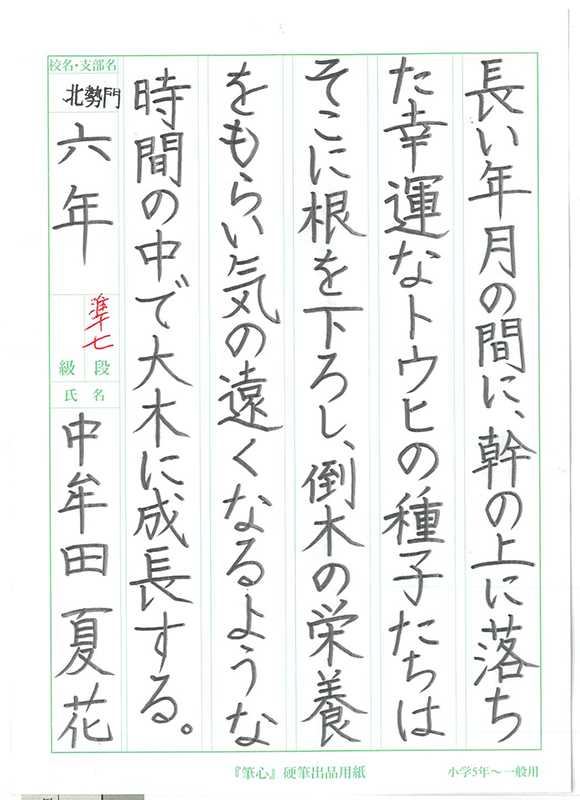 長い年月の間に、幹の上に落ち
た幸運なトウヒの種子たちは
そこに根を下ろし、倒木の栄養
をもらい気の遠くなるような
時間の中で大木に成長する。
校名・支部名
北勢門
六年
準七
段
級
氏名
中牟田夏花
『筆心』硬筆出品用紙
小学5年～一般用